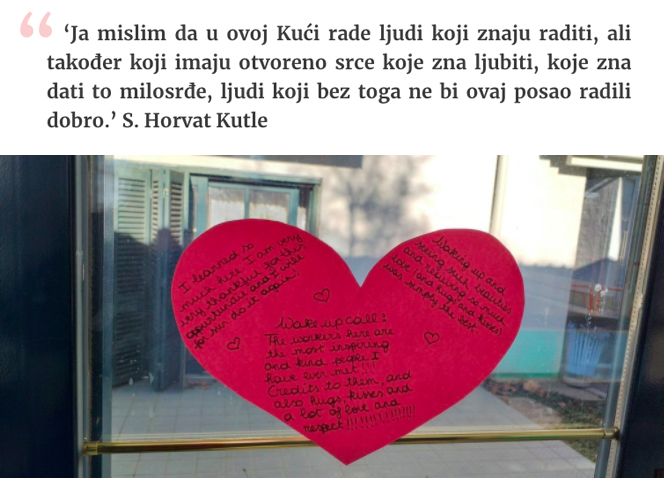 “ ‘Ja mislim da u ovoj Kući rade ljudi koji znaju raditi, ali
također koji imaju otvoreno srce koje zna ljubiti, koje zna
dati to milosrđe, ljudi koji bez toga ne bi ovaj posao radili
dobro.’ S. Horvat Kutle
I learned so
much here I am very
very thankful for this
and I will
for sure do it again!
Waking up and
seeing such beauties
and relieving so much
love and hugs and kisses
was simply the best.
Wake up call:
The workers here are
the most inspiring
and kind people I
have ever met!!!!
Credits to them, and
also hugs, kisses and
a lot of love and
respect!!!!